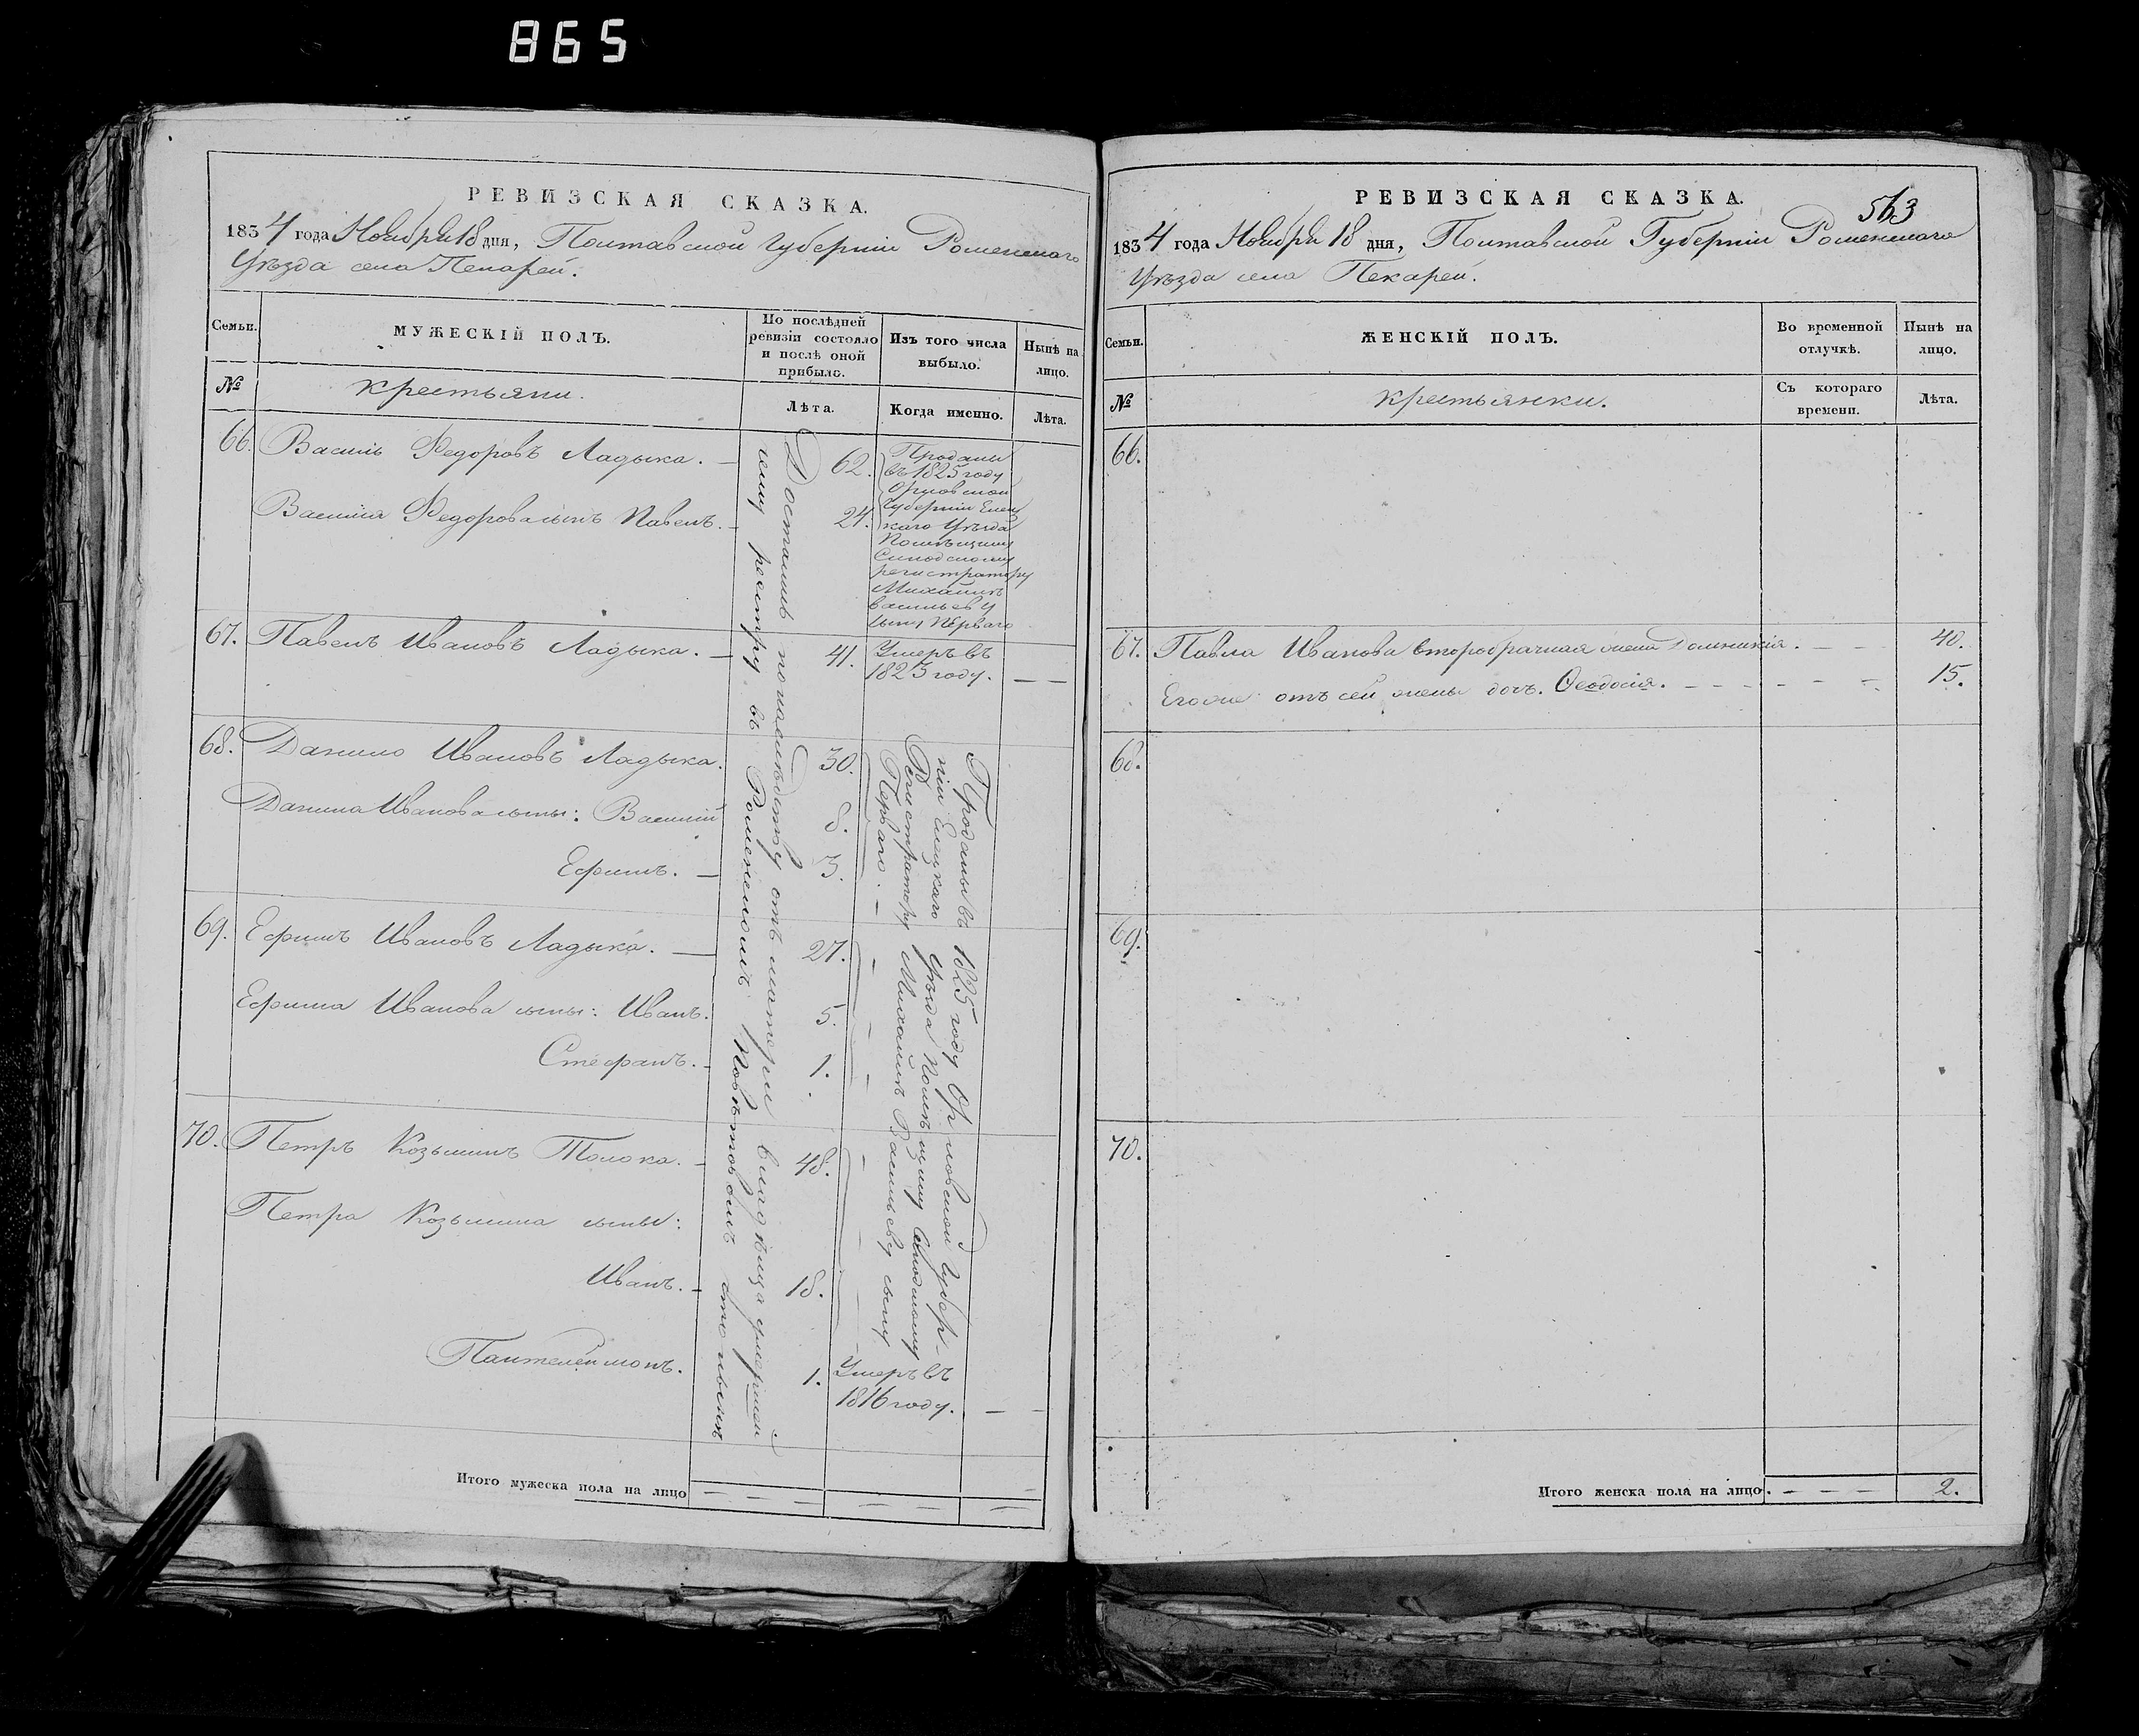 865
РЕВИЗСКАЯ СКАЗКА.
1834 года Ноября 18 дня, Полтавской Губерніи Роменского
Уѣзда села Пекарей.
Семьи.
МУЖЕСКІЙ ПОЛЪ.
По послѣдней
ревизіи состояло
и послѣ оной
прибыло.
Изъ того числа
выбыло.
Нынѣ на
лицо.
№
крестьяни.
Лѣта.
Когда именно.
Лѣта.
66. Василь Федоровъ Ладыка. — 62.
Василія Федорова сынъ Павелъ. — 24.
Проданы
въ 1825 году
Орловской
Губерніи Елец
каго Уѣзда
Помѣщику
Синодскому
регистратору
Михайлѣ
Васильеву
сыну Перваго
67. Павелъ Ивановъ Ладыка. — 41. Умеръ въ
1823 году. — —
68. Данило Ивановъ Ладыка. 30.
Данила Иванова сыны: Василій 8.
Ефимъ. — 3.
69. Ефимъ Ивановъ Ладыка. — 27.
Ефима Иванова сыны: Иванъ. 5.
Стефанъ. — 1.
70. Петръ Козьминъ Толока. — 48.
Петра Козьмина сыны:
Иванъ. — 18.
Пантелеймонъ. 1. Умеръ въ
1816 году. — —
Достались по наслѣдству отъ матери владѣлца
сему реестру въ Роменскомъ Повѣтовомъ
Проданы въ 1825 году Орловской Губер-
ніи Елецкаго Уѣзда Помѣщику Синодскому
Регистратору Михайлѣ Васильеву сыну
Перваго. —
Итого мужеска пола на лицо — — — — — — — —
РЕВИЗСКАЯ СКАЗКА.
563
1834 года Ноября 18 дня, Полтавской Губерніи Роменского
Уѣзда села Пекарей.
Семьи.
ЖЕНСКІЙ ПОЛЪ.
Во временной
отлучкѣ.
Нынѣ на
лицо.
№
крестьянки.
Съ котораго
времени.
Лѣта.
66.
67. Павла Иванова второбрачная жена Домникія. — — 40.
Егоже отъ сей жены дочь Ѳеодосія. — — — — — — 15.
68.
69.
70.
Итого женска пола на лицо. — — — 2.